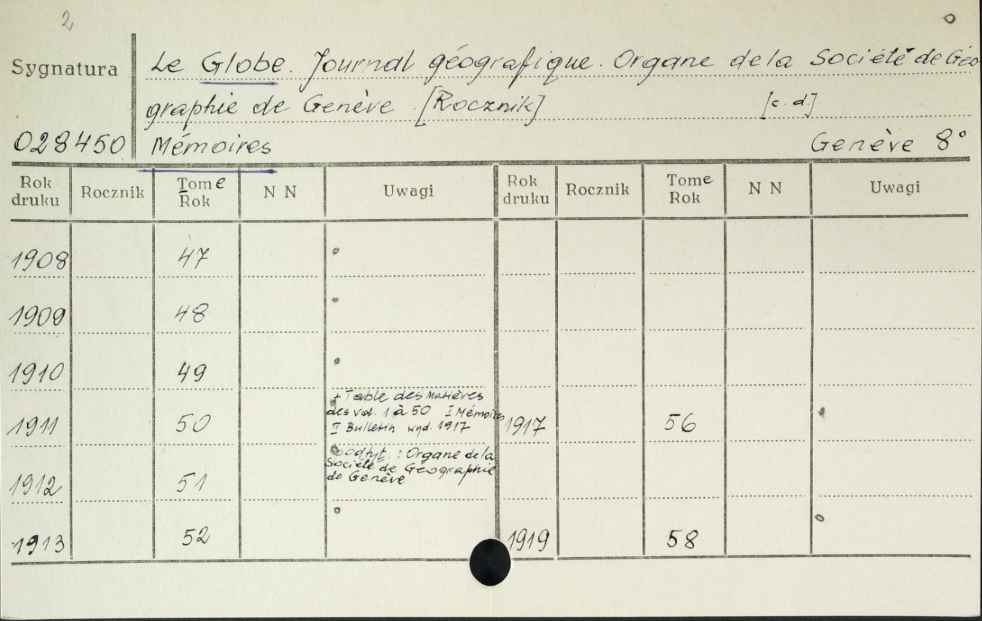 2
Sygnatura
Le Globe. Journal géografique. Organe de la Société de Géo
graphie de Genève. [Rocznik] [c.d.]
028450 Mémoires Genève 8°
Rok druku Rocznik Tome Rok N N Uwagi Rok druku Rocznik Tome Rok N N Uwagi
1908 47
1909 48
1910 49
+ Table des Matières
des vol. 1 à 50 I Mémoires
II Bulletin wyd. 1917
1911 50 1917 56
podtyt. : Organe de la
Société de Géographie
de Genève
1912 51
1913 52 1919 58